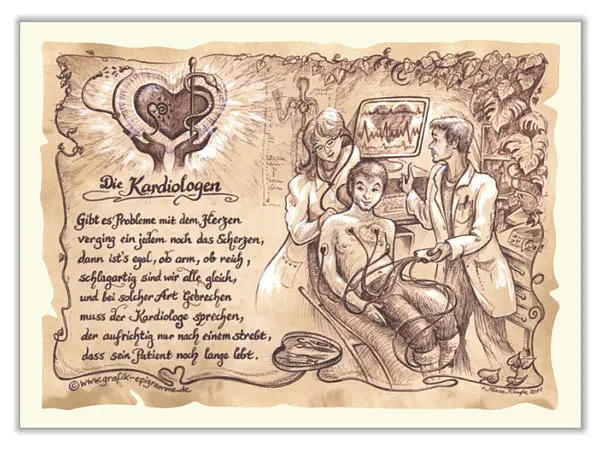 Die Kardiologen
Gibt es Probleme mit dem Herzen
verging ein jedem noch das Scherzen,
dann ist's egal, ob arm, ob reich,
schlagartig sind wir alle gleich,
und bei solcher Art Gebrechen
muss der Kardiologe sprechen,
der aufrichtig nur nach einem strebt,
dass sein Patient noch lange lebt.
©www.grafik-epigramme.de